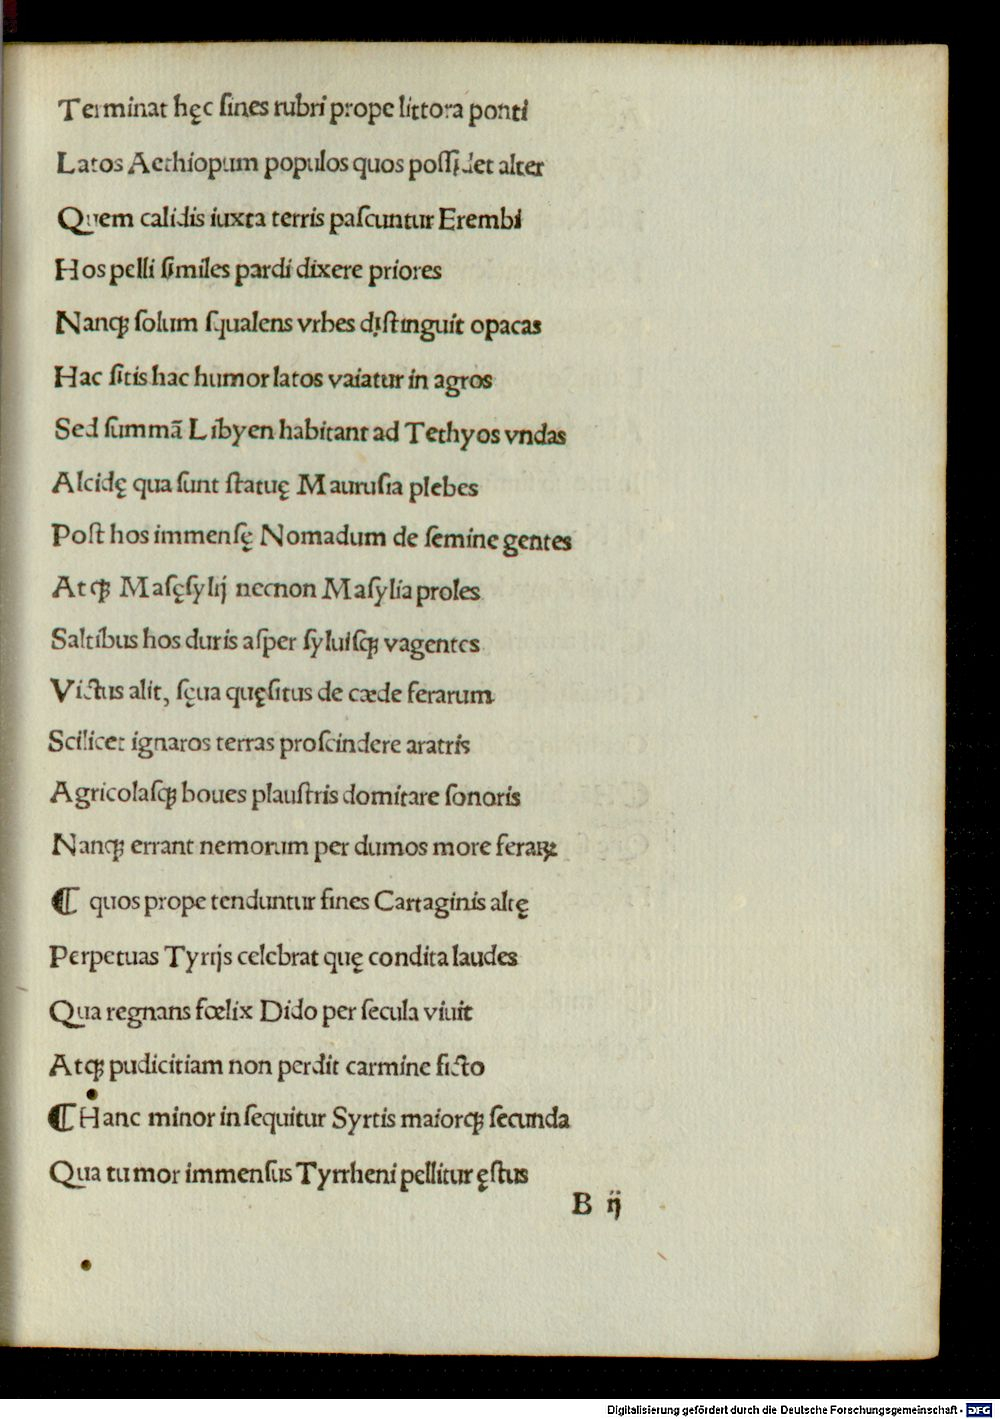 Terminat hęc ſines rubri prope littora ponti
Latos Aethiopum populos quos poſſidet alter
Quem calidis iuxta terris paſcuntur Erembi
Hos pelli ſimiles pardi dixere priores
Nanqꝫ ſolum ſqualens vrbes diſtinguit opacas
Hac ſitis hac humor latos vaiatur in agros
Sed ſummā Libyen habitant ad Tethyos vndas
Alcidę qua ſunt ſtatuę Mauruſia plebes
Poſt hos immenſę Nomadum de ſemine gentes
Atqꝫ Maſęſylij necnon Maſylia proles
Saltibus hos duris aſper ſyluiſqꝫ vagentes
Victus alit, ſęua quęſitus de cæde ferarum
Scilicet ignaros terras proſcindere aratris
Agricolaſqꝫ boues plauſtris domitare ſonoris
Nanqꝫ errant nemorum per dumos more feraꝝ
¶ quos prope tenduntur fines Cartaginis altę
Perpetuas Tyrijs celebrat quę condita laudes
Qua regnans fœlix Dido per ſecula viuit
Atqꝫ pudicitiam non perdit carmine ficto
¶ Hanc minor inſequitur Syrtis maiorqꝫ ſecunda
Qua tumor immenſus Tyrrheni pellitur ęſtus
B ij
Digitalisierung gefördert durch die Deutsche Forschungsgemeinschaft - DFG